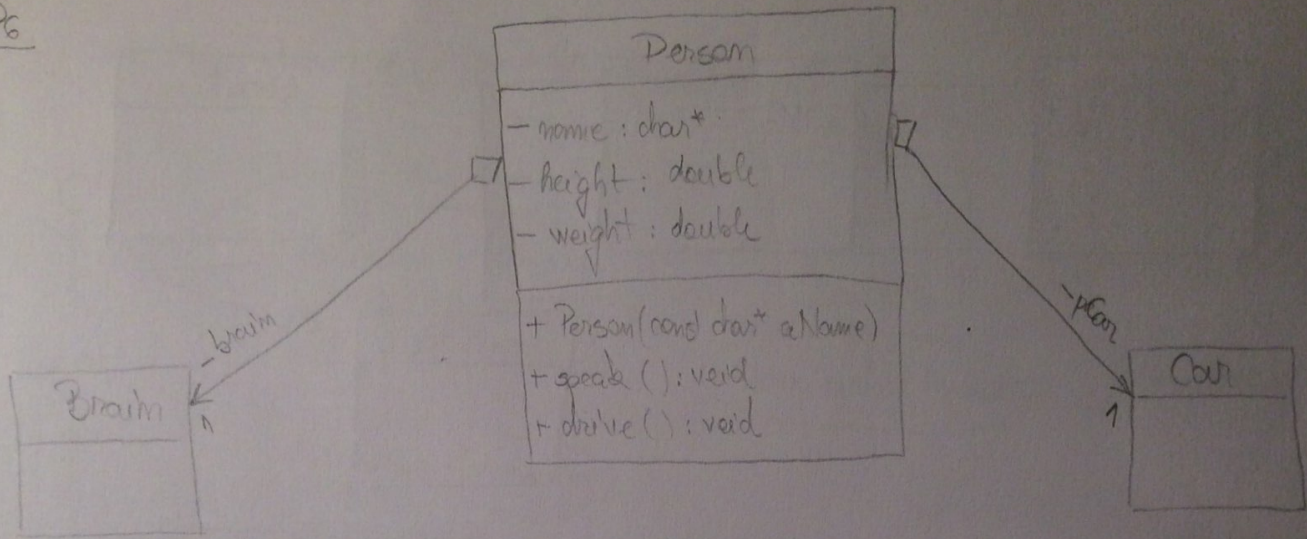 Person
- name : char*
- height : double
- weight : double
+ Person(const char* aName)
+ speak () : void
+ drive () : void
- brain
- pCar
Brain
1
1
Car